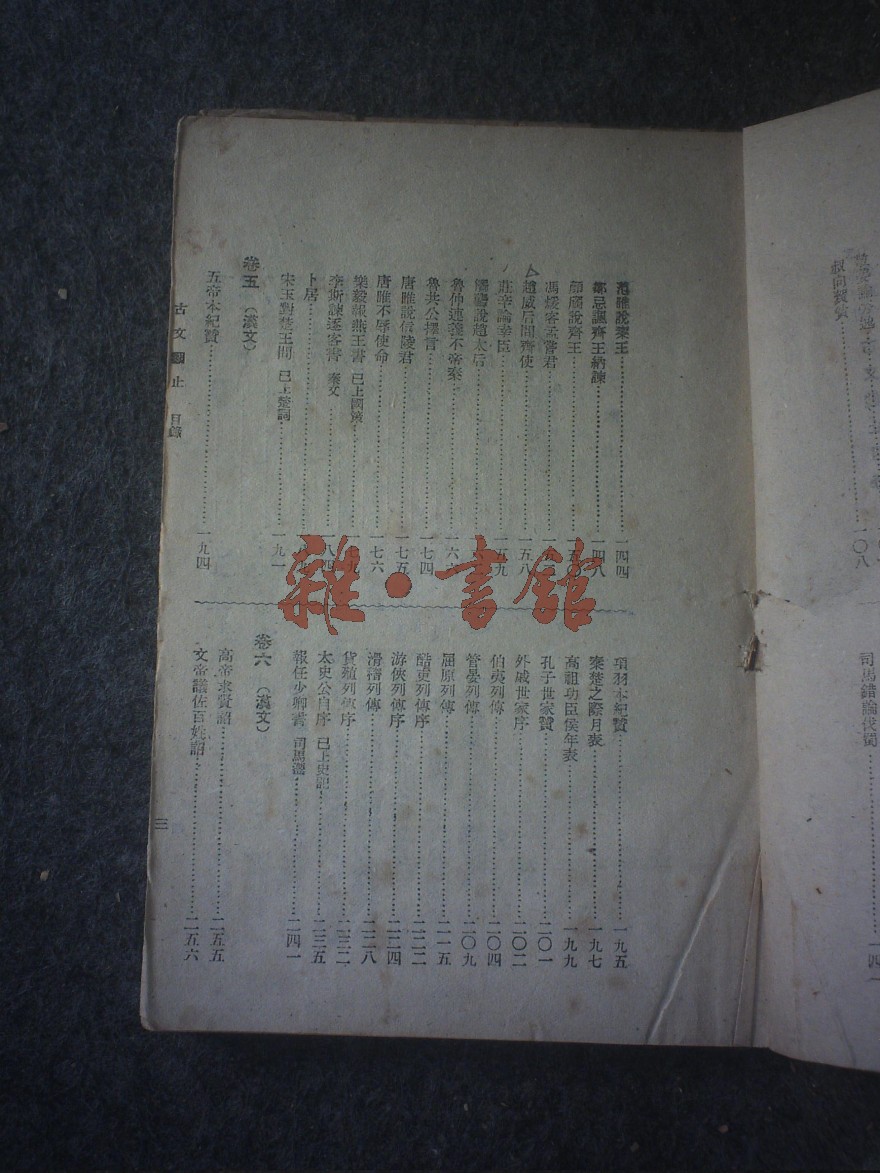 范雎說秦王 一四四
鄒忌諷齊王納諫 一四八
顏斶說齊王 一五〇
馮煖客孟嘗君
趙威后問齊使 一五八
莊辛論幸臣 一五九
觸讋說趙太后
魯仲連義不帝秦 一六六
魯共公擇言 一七四
唐雎說信陵君 一七五
唐雎不辱使命 一七六
樂毅報燕王書 已上國策 一七九
李斯諫逐客書 秦文 一八四
卜居
宋玉對楚王問 已上楚詞 一九一
卷五 (漢文)
五帝本紀贊 一九四
項羽本紀贊 一九五
秦楚之際月表 一九七
高祖功臣侯年表 一九九
孔子世家贊 二〇一
外戚世家序 二〇二
伯夷列傳 二〇四
管晏列傳 二〇九
屈原列傳 二一五
酷吏列傳序 二二二
游俠列傳序 二二四
滑稽列傳 二二八
貨殖列傳序 二三二
太史公自序 已上史記 二三五
報任少卿書 司馬遷 二四一
卷六 (漢文)
高帝求賢詔 二五五
文帝議佐百姓詔 二五六
古文觀止 目錄
三
司馬錯論伐蜀
一〇八
雜·書館